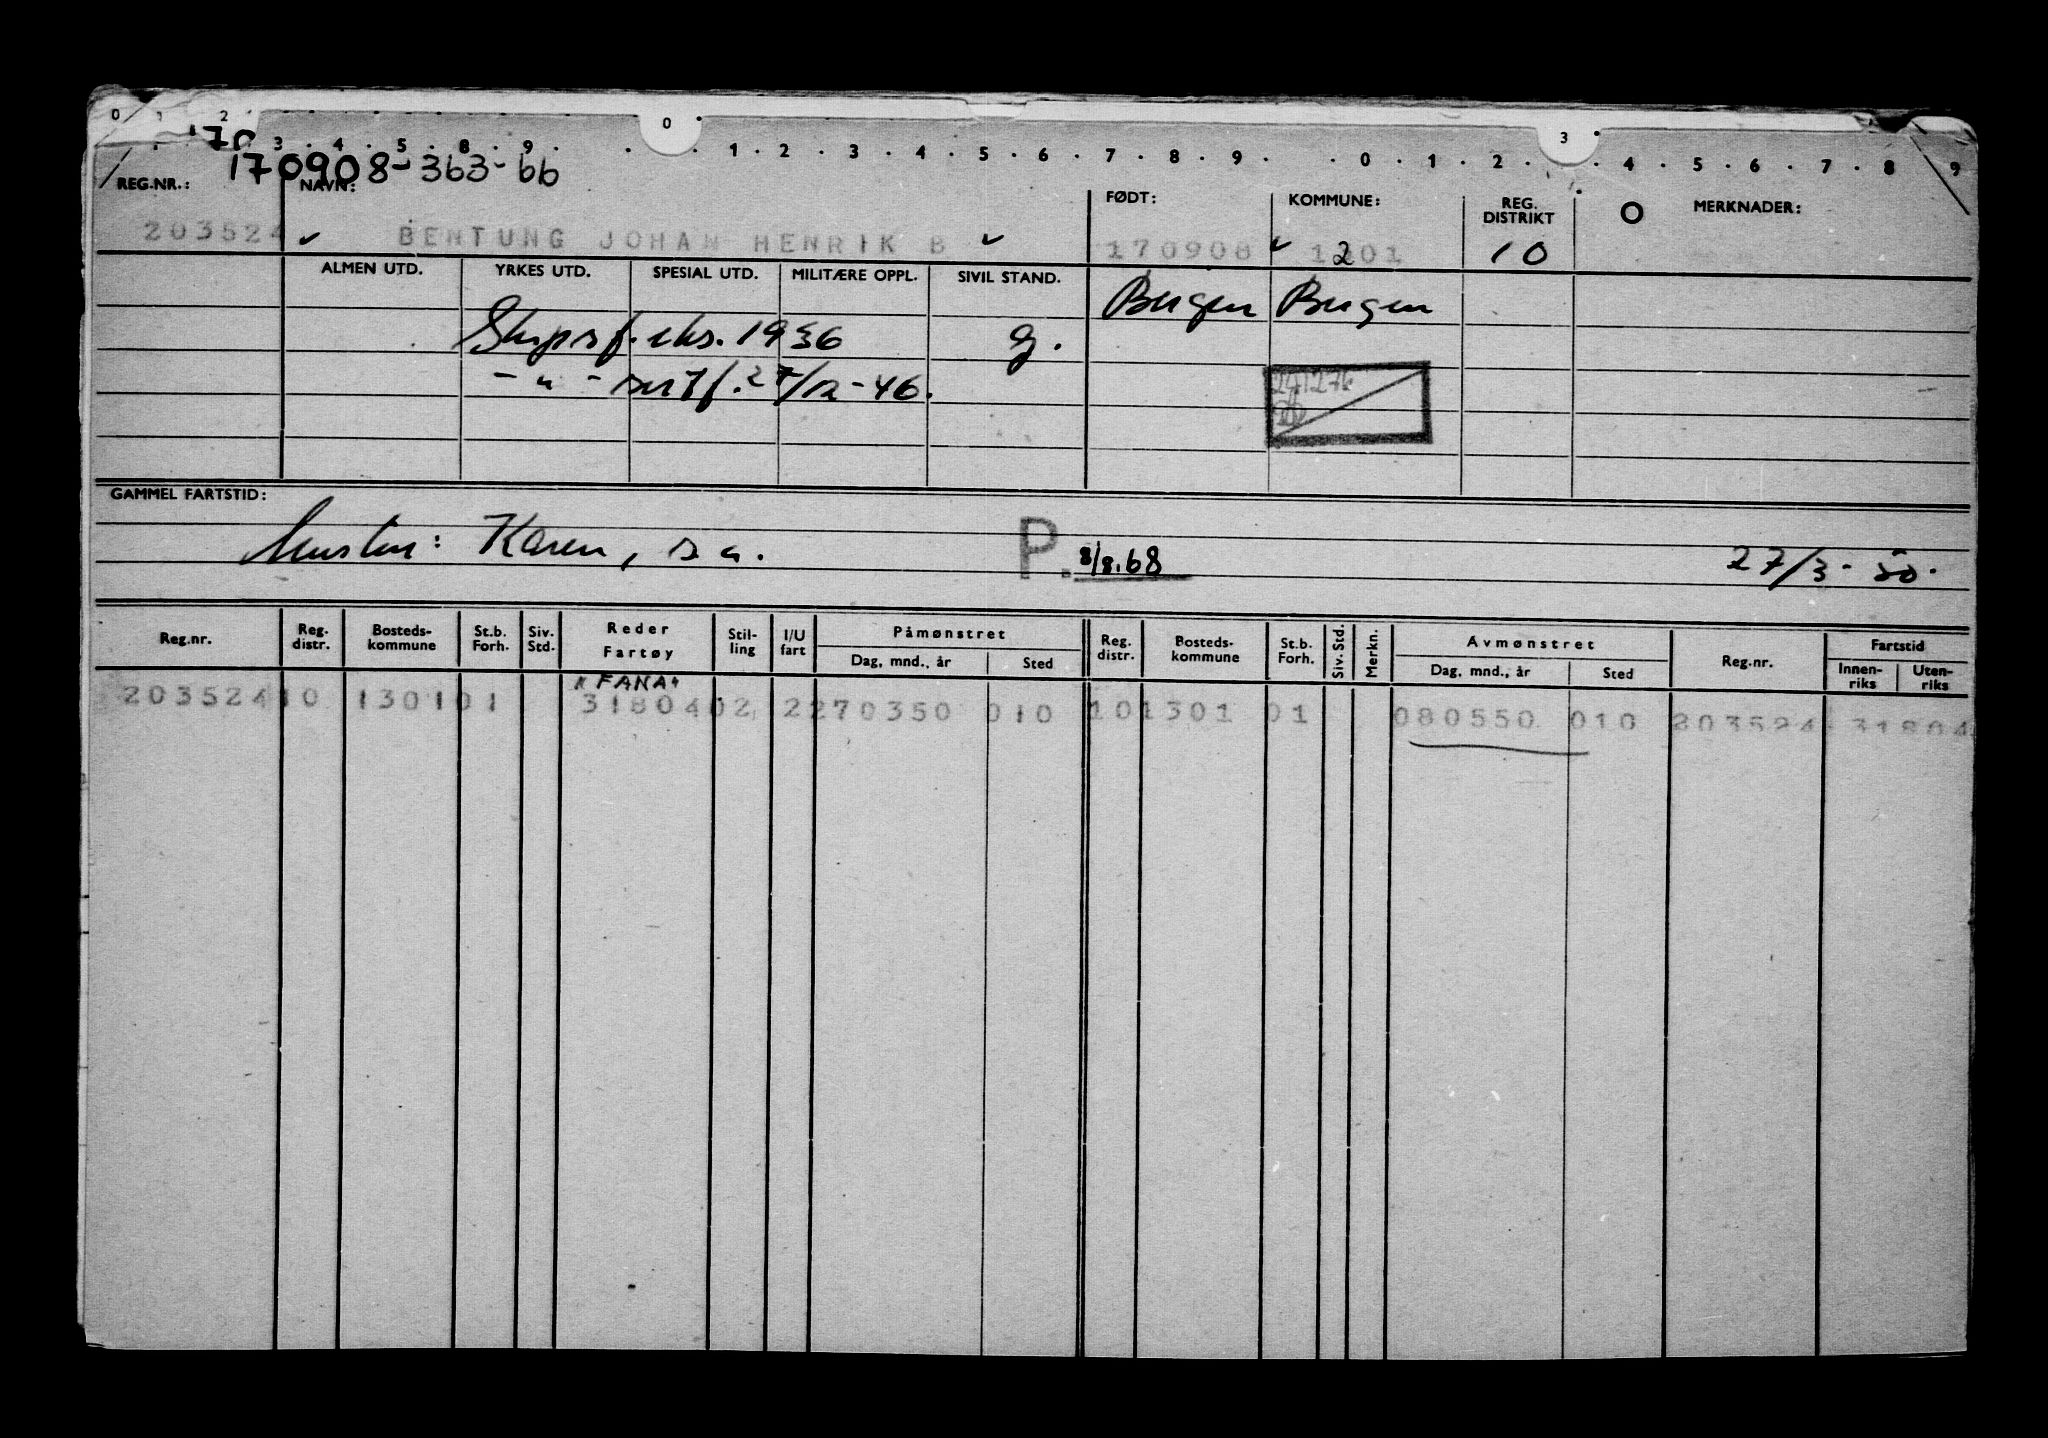 0 1 2 3 . 4 . 5 . 8 . 9 . . 0 . 1 . 2 . 3 . 4 . 5 . 6 . 7 . 8 . 9 . . 0 . 1 . 2 . 3 . 4 . 5 . 6 . 7 . 8 9
170908-363-66
REG.NR.: NAVN: FØDT: KOMMUNE: REG. DISTRIKT MERKNADER:
203524 BENTUNG JOHAN HENRIK B 170908 10
ALMEN UTD. YRKES UTD. SPESIAL UTD. MILITÆRE OPPL. SIVIL STAND.
Bergen Bergen
Skipsf. eks. 1936 g.
- " - sertf. 27/12-46.
GAMMEL FARTSTID:
Karen, s.a. P. 8/8.68 27/3-50.
Reg.nr. Reg. distr. Bosteds-kommune St.b. Forh. Siv. Std. Reder Fartøy Stil-ling I/U fart Påmønstret Dag, mnd., år Sted Reg. distr. Bosteds-kommune St.b. Forh. Siv. Std. Merkn. Avmønstret Dag, mnd., år Sted Reg.nr. Fartstid Innen-riks Uten-riks
"FANA"
203524 10 1301 01 31804 02 2 270350 010 10 1301 01 080550 010 203524 31804